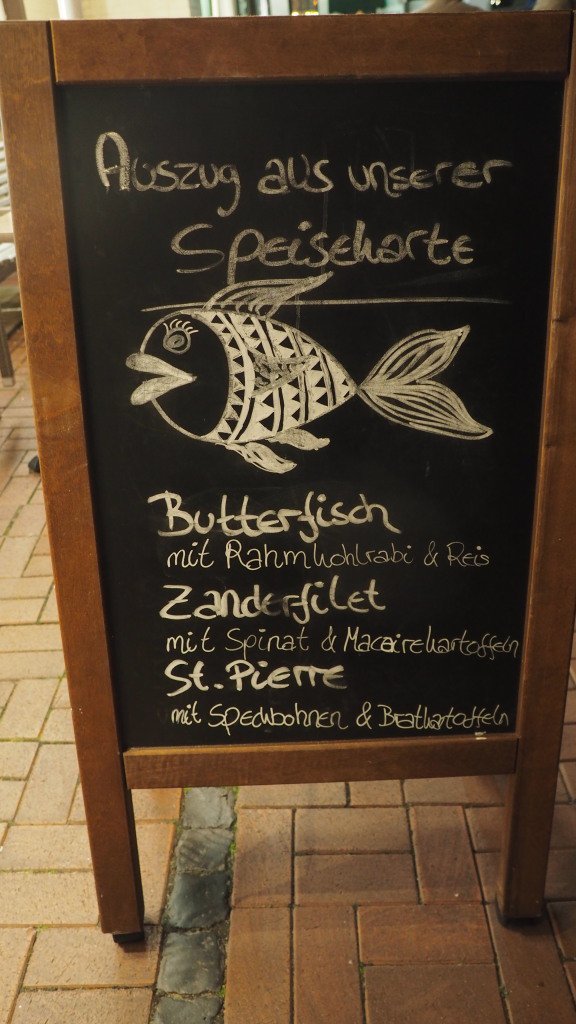 Auszug aus unserer
Speisekarte
Butterfisch
mit Rahmkohlrabi & Reis
Zanderfilet
mit Spinat & Macairekartoffeln
St. Pierre
mit Speckbohnen & Bratkartoffeln